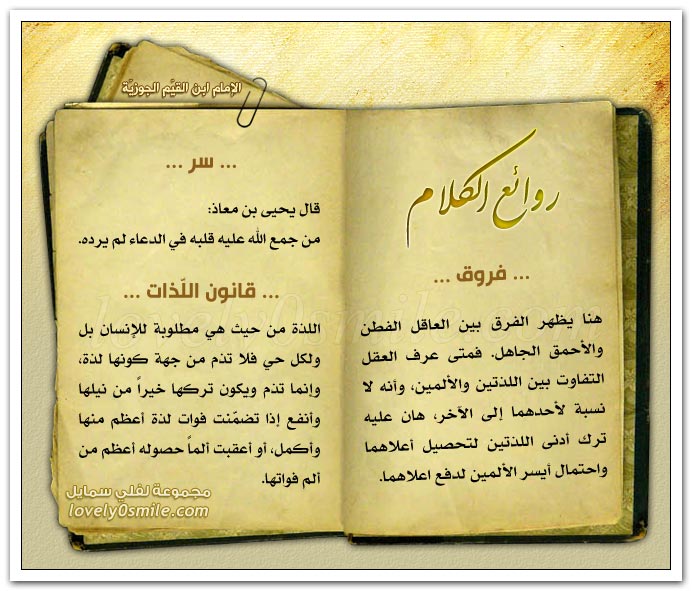 الإمام ابن القيَّم الجوزيَّة
روائع الكلام
... فروق ...
هنا يظهر الفرق بين العاقل الفطن
والأحمق الجاهل. فمتى عرف العقل
التفاوت بين اللذتين والألمين، وأنه لا
نسبة لأحدهما إلى الآخر، هان عليه
ترك أدنى اللذتين لتحصيل أعلاهما
واحتمال أيسر الألمين لدفع اعلاهما.
... سر ...
قال يحيى بن معاذ:
من جمع الله عليه قلبه في الدعاء لم يرده.
... قانون اللّذات ...
اللذة من حيث هي مطلوبة للإنسان بل
ولكل حي فلا تذم من جهة كونها لذة،
وإنما تذم ويكون تركها خيراً من نيلها
وأنفع إذا تضمّنت فوات لذة أعظم منها
وأكمل، أو أعقبت ألماً حصوله أعظم من
ألم فواتها.
مجموعة لفلي سمايل
lovely0smile.com
lovely0smile.com